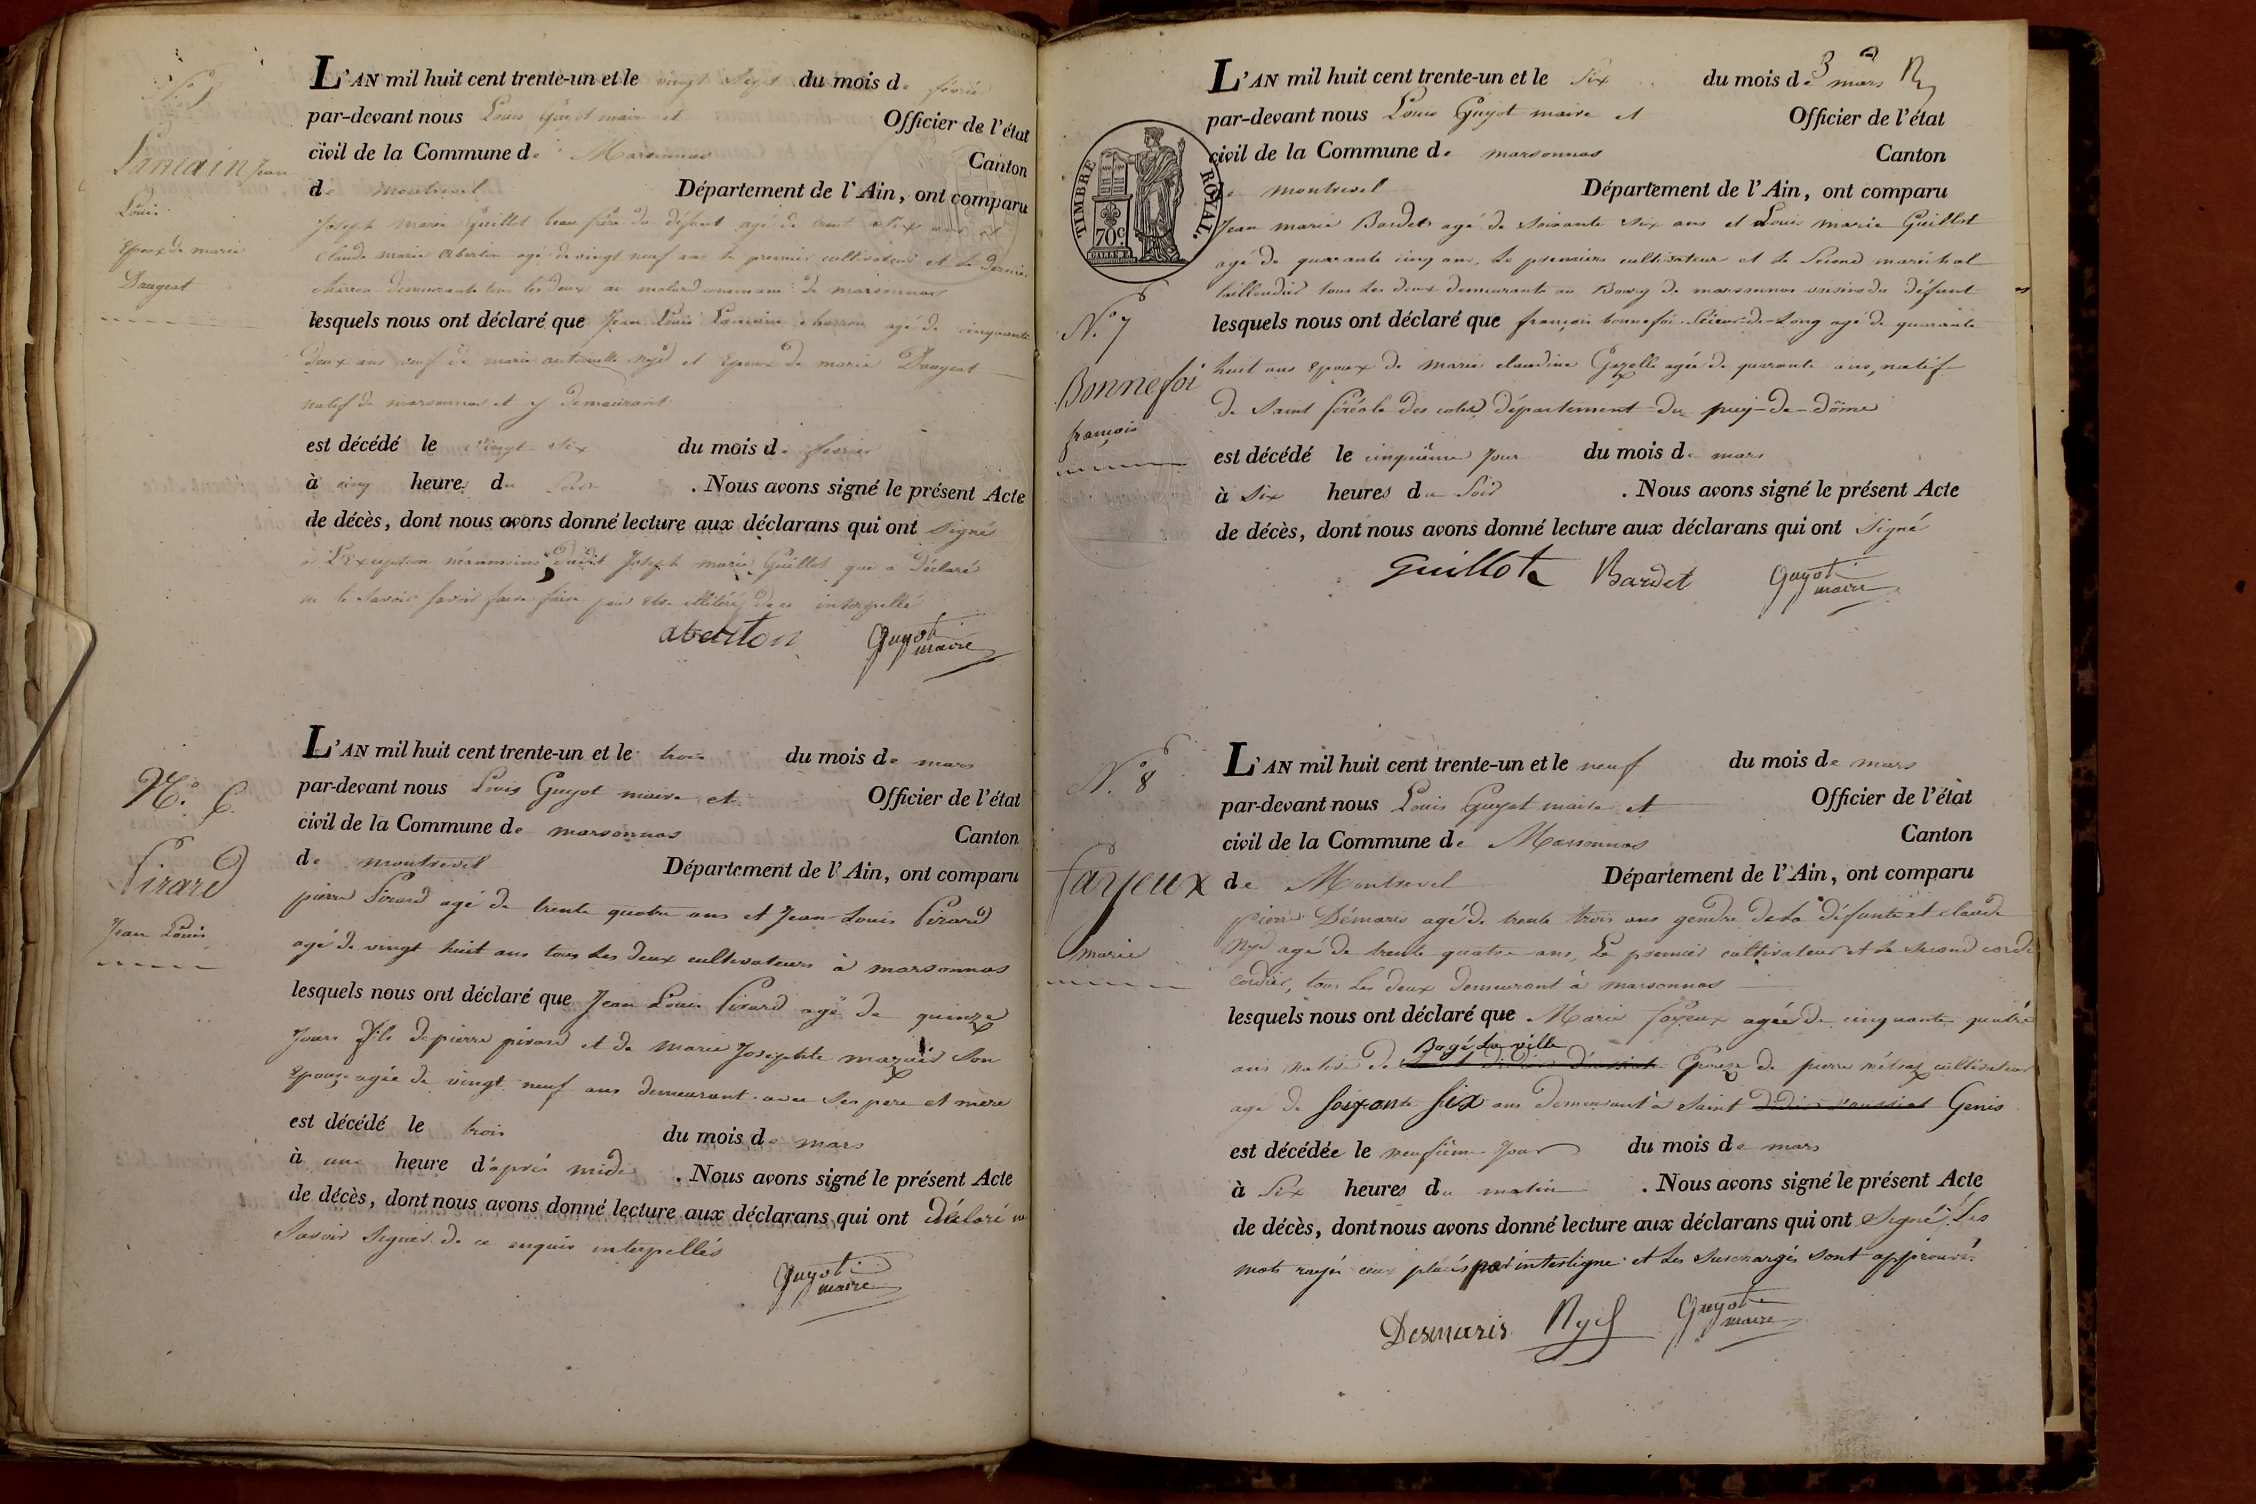 N.° 5
Lamain Jean
Louis
Epoux de marie
Daugeat
L'AN mil huit cent trente-un et le vingt Sept du mois de février
par-devant nous Louis Guyot maire et Officier de l'état
civil de la Commune de Marsonnas Canton
de montrevel Département de l'Ain, ont comparu
Joseph Marie Guillot beau frère du défunt agé de trent Six ans et
Claude marie Aberton agé de vingt neuf ans le premier cultivateur et le dernier
charron demeurants tous les deux au commune de marsonnas
lesquels nous ont déclaré que Jean Louis Lamain charron agé de cinquante
deux ans veuf de marie antoinette nyd et Epoux de marie Daugeat
natif de marsonnas et y demeurant
est décédé le vingt Six du mois de fevrier
à cinq heures du Soir . Nous avons signé le présent Acte
de décès, dont nous avons donné lecture aux déclarans qui ont Signés
à L'Exception néanmoins dudit Joseph marie Guillot qui a Déclaré
ne le Savoir faire pour etre illitéré de ce interpellé
aberton Guyot maire
N.° 6.
Pirard
Jean Louis
L'AN mil huit cent trente-un et le trois du mois de mars
par-devant nous Louis Guyot maire et Officier de l'état
civil de la Commune de marsonnas Canton
de montrevel Département de l'Ain, ont comparu
pierre Pirard agé de trente quatre ans et Jean Louis Pirard
agé de vingt huit ans tous les deux cultivateurs à marsonnas
lesquels nous ont déclaré que Jean Louis Pirard agé de quinze
Jours fils de pierre pirard et de marie Josephte mazuir Son
Epouze agée de vingt neuf ans demeurant avec Ses pere et mère
est décédé le trois du mois de mars
à une heure d'après midi . Nous avons signé le présent Acte
de décès, dont nous avons donné lecture aux déclarans qui ont Déclaré ne
Savoir Signer de ce enquis interpellés
Guyot maire
3 R
TIMBRE ROYAL
70c
L'AN mil huit cent trente-un et le Six du mois de mars
par-devant nous Louis Guyot maire et Officier de l'état
civil de la Commune de marsonnas Canton
de montrevel Département de l'Ain, ont comparu
Jean marie Bardet agé de Soixante Six ans et Louis marie Guillot
agé de quarante cinq ans, Le premiere cultivateur et le Second maréchal
taillandier tous les deux demeurants au Bourg de marsonnas voisins du défunt
N.° 7
Bonnefoi
françois
lesquels nous ont déclaré que françois bonnefoi Scieur-de-Long agé de quarante
huit ans epoux de marie claudine Gozelle agée de quarante ans, natif
de Saint ferréole des cotes département du puy-de-dôme
est décédé le cinquième Jour du mois de mars
à Six heures du Soir . Nous avons signé le présent Acte
de décès, dont nous avons donné lecture aux déclarans qui ont Signé
Guillot Bardet Guyot maire
N.° 8
fayeux
marie
L'AN mil huit cent trente-un et le neuf du mois de mars
par-devant nous Louis Guyot maire et Officier de l'état
civil de la Commune de Marsonnas Canton
de Montrevel Département de l'Ain, ont comparu
pierre Démaris agé de trente trois ans gendre de la défunte et claude
Nyd agé de trente quatre ans, Le premier cultivateur et le Second corde
cordier, tous les deux demeurant à marsonnas
lesquels nous ont déclaré que Marie fayeux agée de cinquante quatre
Bagé la ville
ans native de Epouze de pierre métrax cultivateur
agé de Soixante Six ans demeurant à Saint didier d'aussiat Genis
est décédée le neufième Jour du mois de mars
à Six heures du matin . Nous avons signé le présent Acte
de décès, dont nous avons donné lecture aux déclarans qui ont Signé, Les
mots rayés ceux placés par interligne et les Surchargés sont approuvé.
Desmaris Nyd Guyot maire